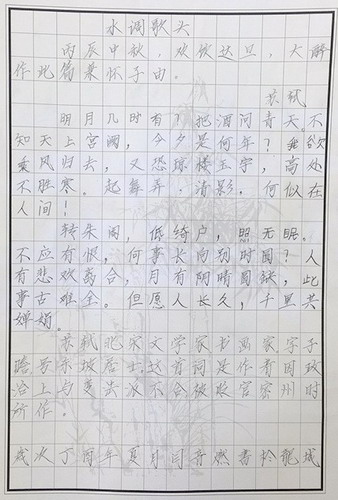 水调歌头
丙辰中秋，欢饮达旦，大醉
作此篇兼怀子由。
苏轼
明月几时有？把酒问青天。不
知天上宫阙，今夕是何年？我欲
乘风归去，又恐琼楼玉宇，高处
不胜寒。起舞弄清影，何似在
人间！
转朱阁，低绮户，照无眠。
不应有恨，何事长向别时圆？人
有悲欢离合，月有阴晴圆缺，此
事古难全。但愿人长久，千里共
婵娟。
苏轼北宋文学家书画家字子
瞻号东坡居士这首词是作者因政
治上与变法派不合被贬官密州时
所作。
岁次丁酉年夏月闫奇燃书于龙城